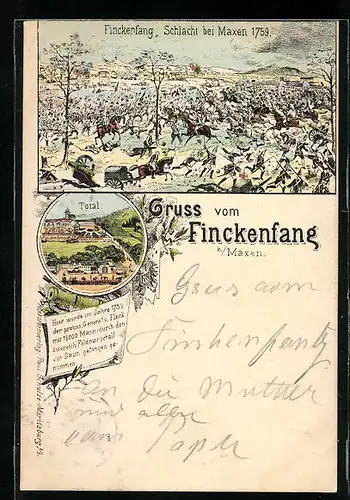 Finckenfang, Schlacht bei Maxen 1759.
Total.
Gruss vom
Finckenfang
b/Maxen.
Hier wurde im Jahre 1759
der preuss. General v. Finck
mit 15000 Mann durch den
österreich. Feldmarschall
von Daun gefangen ge-
nommen.
Paul Schulze-Moritzburg i/S.
Gruss vom
Finkenfang
an die Mutter
und alle
vom Papa